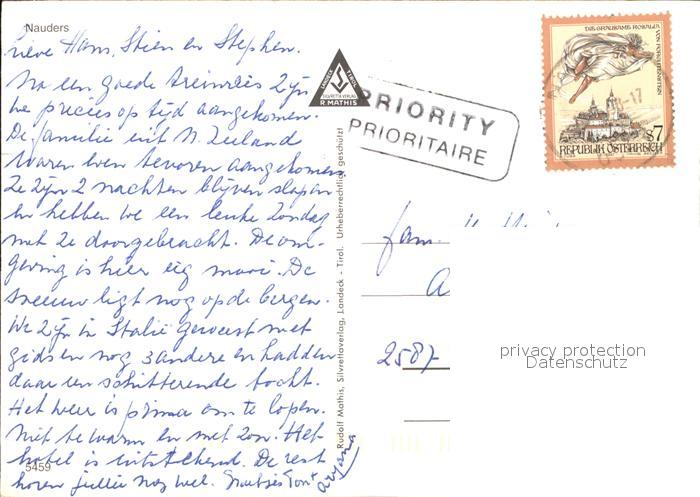 Nauders
Lieve Hans, Stien en Stephen.
Na een goede treinreis zijn
we precies op tijd aangekomen.
De familie uit N. Zeeland
waren even tevoren aangekomen.
Ze zijn 2 nachten blijven slapen
en hebben we een leuke Zondag
met ze doorgebracht. De om-
geving is hier erg mooi. De
sneeuw ligt nog op de bergen.
We zijn in Italië geweest met
gids en nog 3 andere en hadden
daar een schitterende tocht.
Het weer is prima om te lopen.
Niet te warm en met zon. Het
hotel is uitstekend. De rest
horen jullie nog wel. Groetjes Ton +
aryana
5459
LANDECK TIROL
SILVRETTA VERLAG
R. MATHIS
Rudolf Mathis, Silvrettaverlag, Landeck - Tirol. Urheberrechtlich geschützt!
PRIORITY
PRIORITAIRE
DIE GRAUSAME ROSALIA VON FORCHTENSTEIN
S 7
REPUBLIK ÖSTERREICH
fam.
A
2587
privacy protection
Datenschutz